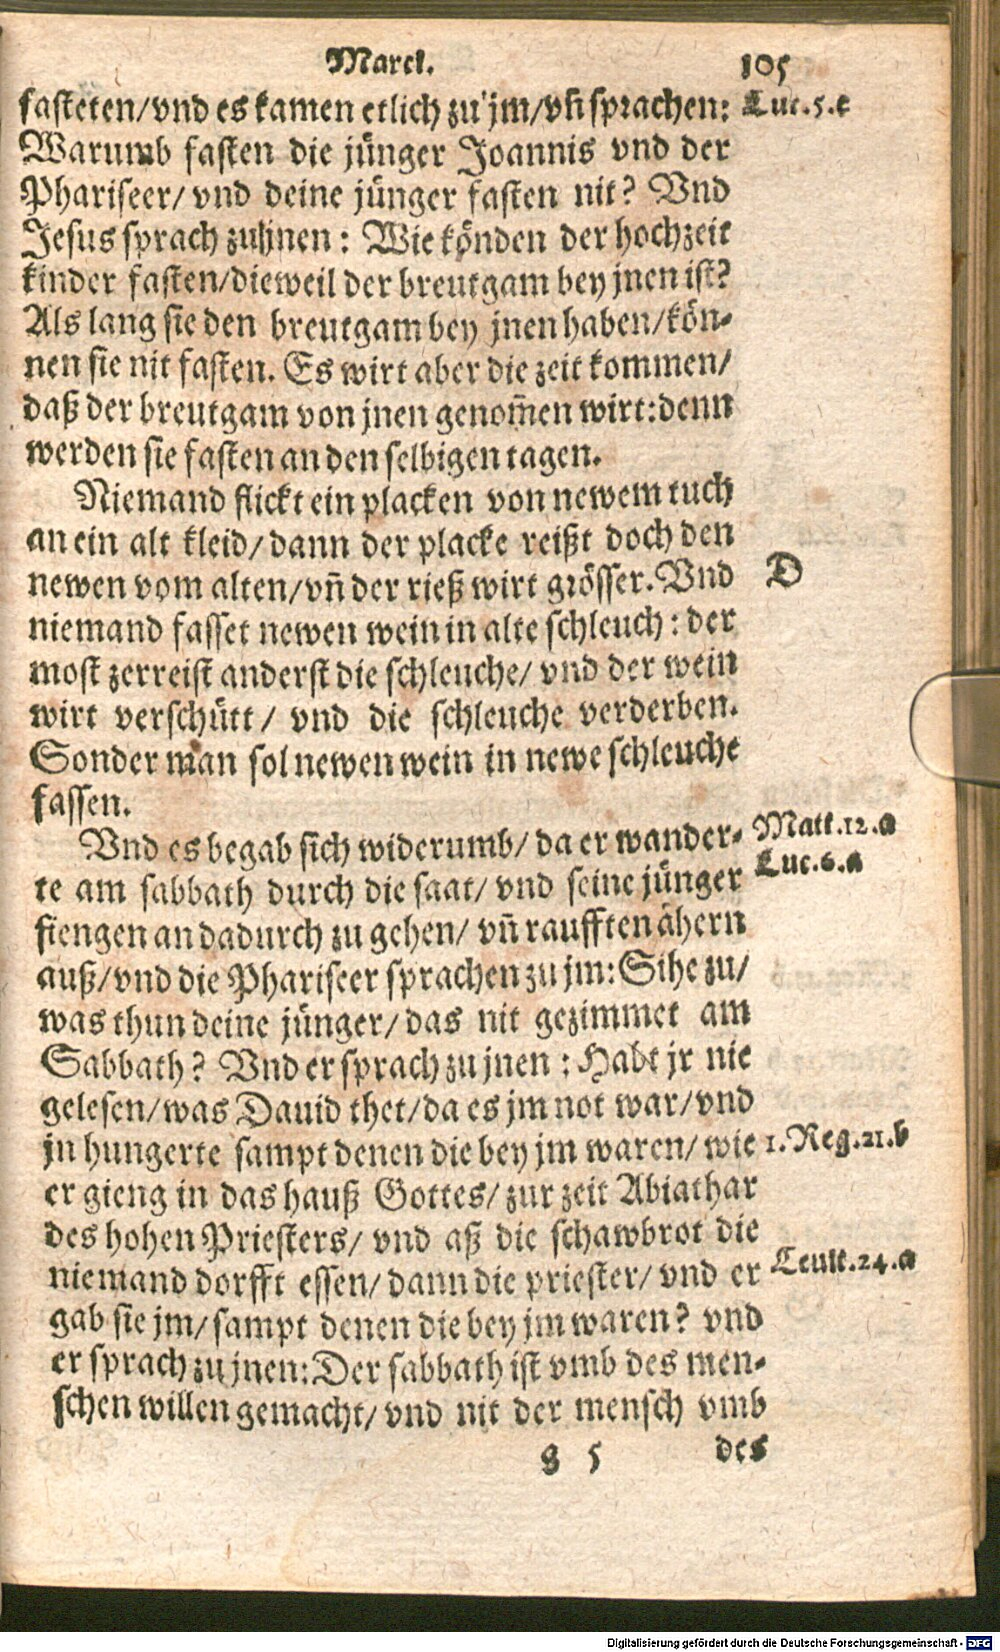 Marci. 105
fasteten/vnd es kamen etlich zu jm/vñ sprachen: Luc.5.e
Warumb fasten die jünger Joannis vnd der
Phariseer/ vnd deine jünger fasten nit? Vnd
Jesus sprach zu jnen: Wie könden der hochzeit
kinder fasten/dieweil der breutgam bey jnen ist?
Als lang sie den breutgam bey jnen haben/kön-
nen sie nit fasten. Es wirt aber die zeit kommen/
daß der breutgam von jnen genom̃en wirt:denn
werden sie fasten an den selbigen tagen.
Niemand flickt ein placken von newem tuch
an ein alt kleid/dann der placke reißt doch den
newen vom alten/vñ der rieß wirt grösser. Vnd D
niemand fasset newen wein in alte schleuch: der
most zerreist anderst die schleuche/ vnd der wein
wirt verschütt/ vnd die schleuche verderben.
Sonder man sol newen wein in newe schleuche
fassen.
Vnd es begab sich widerumb/ da er wander- Matt.12.a
te am sabbath durch die saat/ vnd seine jünger Luc.6.a
fiengen an dadurch zu gehen/ vñ raufften ähern
auß/vnd die Phariseer sprachen zu jm: Sihe zu/
was thun deine jünger/das nit gezimmet am
Sabbath? Vnd er sprach zu jnen: Habt jr nie
gelesen/was Dauid thet/da es jm not war/vnd
jn hungerte sampt denen die bey jm waren/ wie 1.Reg.21.b
er gieng in das hauß Gottes/ zur zeit Abiathar
des hohen Priesters/ vnd aß die schawbrot die
niemand dorfft essen/ dann die priester/ vnd er Leuit.24.a
gab sie jm/ sampt denen die bey jm waren? vnd
er sprach zu jnen: Der sabbath ist vmb des men-
schen willen gemacht/ vnd nit der mensch vmb
g 5 des
Digitalisierung gefördert durch die Deutsche Forschungsgemeinschaft - DFG